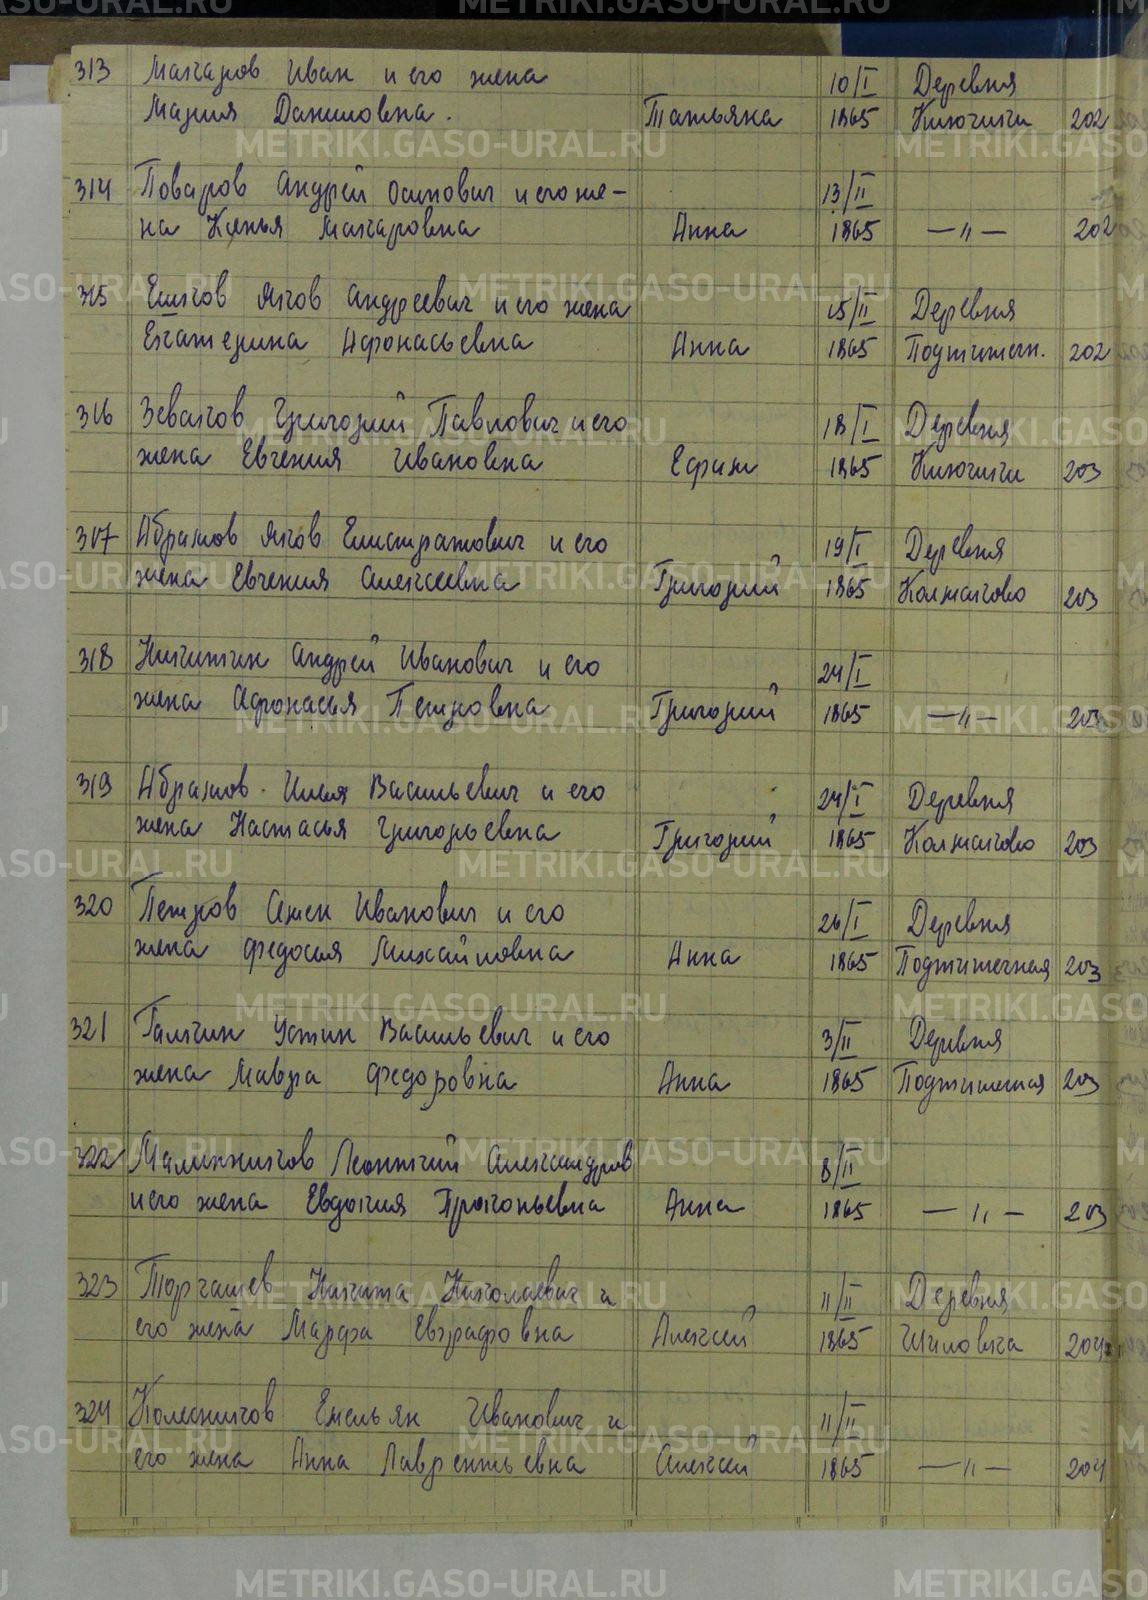 313 Макаров Иван и его жена 10/I Деревня
Мария Даниловна. Татьяна 1865 Ключики 202
314 Поваров Андрей Осипович и его же-
13/II
на Ксенья Макаровна Анна 1865 —〃— 202
315 Ершов Яков Андреевич и его жена 15/II Деревня
Екатерина Афонасьевна Анна 1865 202
316 Зевахов Григорий Павлович и его 18/I Деревня
жена Евгения Ивановна Ефрим 1865 Ключики 203
317 Абрамов Яков Елистратович и его 19/I Деревня
жена Евгения Алексеевна Григорий 1865 Колмаково 203
318 Никитин Андрей Иванович и его 24/I
жена Афонасья Петровна Григорий 1865 —〃— 203
319 Абрамов Илья Васильевич и его 24/I Деревня
жена Настасья Григорьевна Григорий 1865 Колмаково 203
320 Петров Семен Иванович и его 26/I Деревня
жена Федосья Михайловна Анна 1865 203
321 Галкин Устин Васильевич и его 3/II Деревня
жена Мавра Федоровна Анна 1865 203
322 Маленников Леонтий Александров 8/II
и его жена Евдокия Прокопьевна Анна 1865 —〃— 203
323 Торгашев Никита Николаевич и 11/II Деревня
его жена Марфа Евграфовна Алексей 1865 Шиловка 204
324 Колесников Емельян Иванович и 11/II
его жена Анна Лаврентьевна Алексей 1865 —〃— 204
METRIKI.GASO-URAL.RU